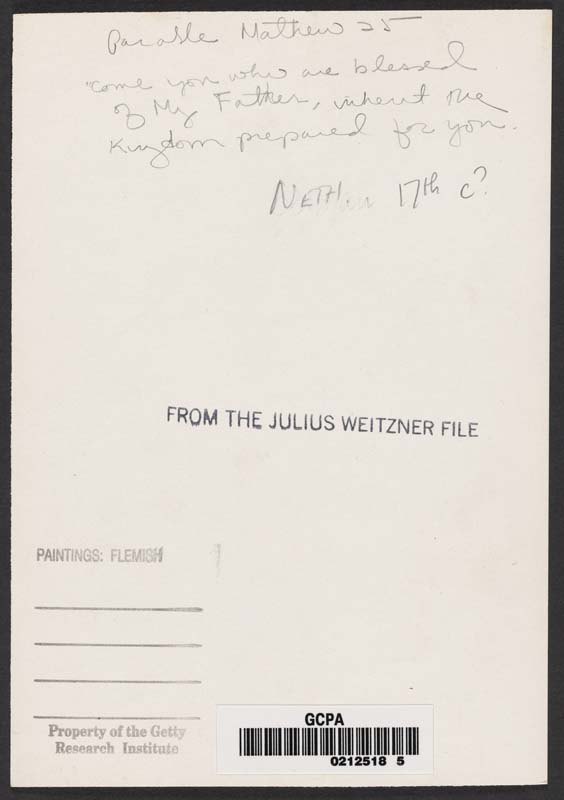 Parable Mathew 25
"Come you who are blessed
of My Father, inherit the
Kingdom prepared for you.
NETH. 17th c?
FROM THE JULIUS WEITZNER FILE
PAINTINGS: FLEMISH
Property of the Getty
Research Institute
GCPA
0212518 5